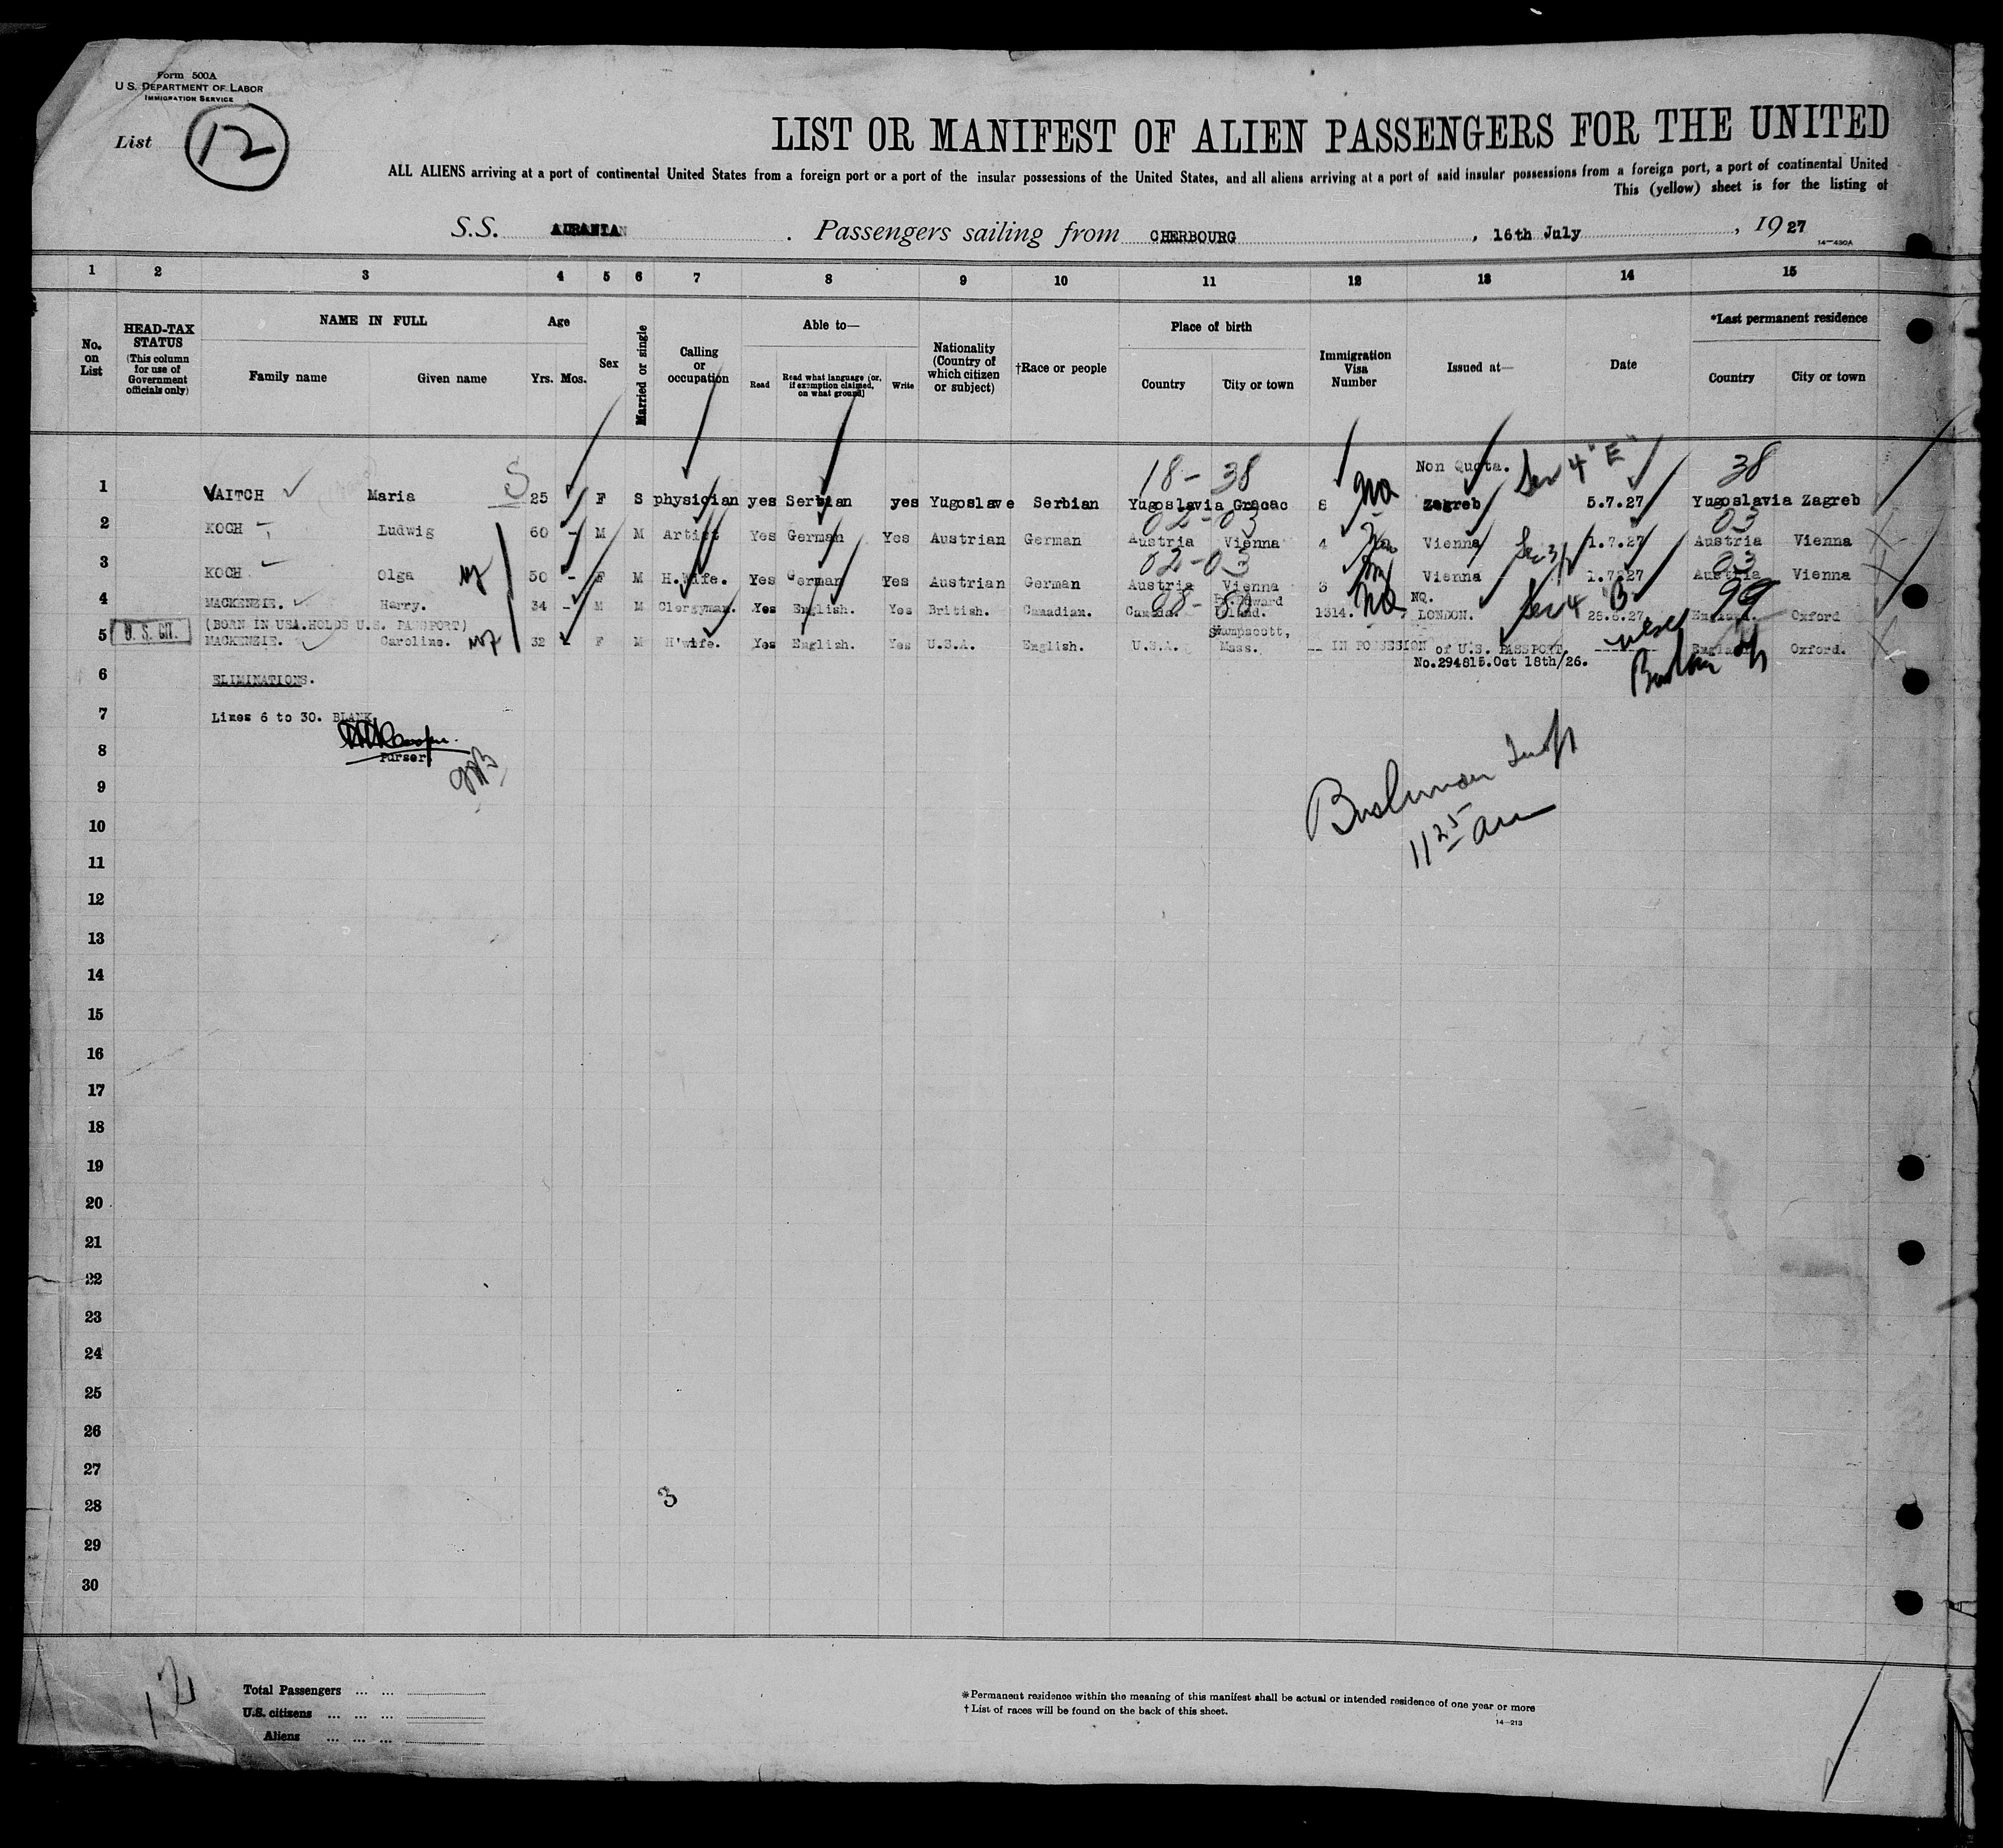 Form 500A
U.S. DEPARTMENT OF LABOR
IMMIGRATION SERVICE
List 12
LIST OR MANIFEST OF ALIEN PASSENGERS FOR THE UNITED
ALL ALIENS arriving at a port of continental United States from a foreign port or a port of the insular possessions of the United States, and all aliens arriving at a port of said insular possessions from a foreign port, a port of continental United
This (yellow) sheet is for the listing of
S.S. . Passengers sailing from CHERBOURG , 16th July , 1927
14-430A
1 2 3 4 5 6 7 8 9 10 11 12 13 14 15
No. on List
HEAD-TAX STATUS (This column for use of Government officials only)
NAME IN FULL
Family name Given name
Age
Yrs. Mos.
Sex
Married or single
Calling or occupation
Able to—
Read Read what language (or, if exemption claimed, on what ground) Write
Nationality (Country of which citizen or subject)
†Race or people
Place of birth
Country City or town
Immigration Visa Number
Issued at—
Date
*Last permanent residence
Country City or town
18-38 Non Quota. Sec 4 "E" 38
1 VAITCH Maria S 25 F S physician yes Serbian yes Yugoslave Serbian Yugoslavia Gracac Zagreb 5.7.27 Yugoslavia Zagreb
02-03 03
2 KOCH Ludwig 60 - M M Artist Yes German Yes Austrian German Austria Vienna 4 Vienna 1.7.27 Austria Vienna
02-03 03
3 KOCH Olga 50 - F M H.Wife. Yes German Yes Austrian German Austria Vienna Vienna 1.7.27 Austria Vienna
4 MACKENZIE. Harry. 34 - M M Clergyman. Yes English. Yes British. Canadian. Canada. 1314. NQ. LONDON. Sec 4 B 99 England. Oxford
(BORN IN USA.HOLDS U.S. PASSPORT)
5 U.S. CIT. MACKENZIE. Caroline. 32 F M H'wife. Yes English. Yes U.S.A. English. U.S.A. Swampscott, Mass. -- IN POSSESION of U.S. PASSPORT. England Oxford.
No.294815.Oct 18th/26.
6 ELIMINATIONS.
7 Lines 6 to 30. BLANK
Purser.
8
9
Bushman
11 25 am
10
11
12
13
14
15
16
17
18
19
20
21
22
23
24
25
26
27
28 3
29
30
12
Total Passengers ... ...
U.S. citizens ... ... ...
Aliens ... ... ...
*Permanent residence within the meaning of this manifest shall be actual or intended residence of one year or more
† List of races will be found on the back of this sheet.
14-213